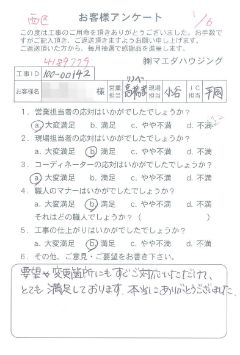 西区
お客様アンケート
1/6
この度は工事のご用命を頂きありがとうございました。お手数で
すがご記入頂き、ご返送頂きますようお願い申し上げます。
ご返送頂いた方から、毎月抽選で感謝品を進呈します。
4189779
㈱マエダハウジング
工事ID 100-00142
お客様名 様 営業担当 現場担当 小谷 IC担当 平岡
1. 営業担当者の応対はいかがでしたでしょうか?
a 大変満足 b. 満足 c. やや不満 d. 不満
2. 現場担当者の応対はいかがでしたでしょうか?
a. 大変満足 b 満足 c. やや不満 d. 不満
3. コーディネーターの応対はいかがでしたでしょうか?
a 大変満足 b. 満足 c. やや不満 d. 不満
4. 職人のマナーはいかがでしたでしょうか?
a. 大変満足 b 満足 c. やや不満 d. 不満
それはどの職人でしょうか?( )
5. 工事の仕上がりはいかがでしたでしょうか?
a. 大変満足 b 満足 c. やや不満 d. 不満
6. その他、ご意見・ご要望をお書き下さい。
要望や変更箇所にもすぐご対応いただけ、
とても満足しております。本当にありがとうございました。